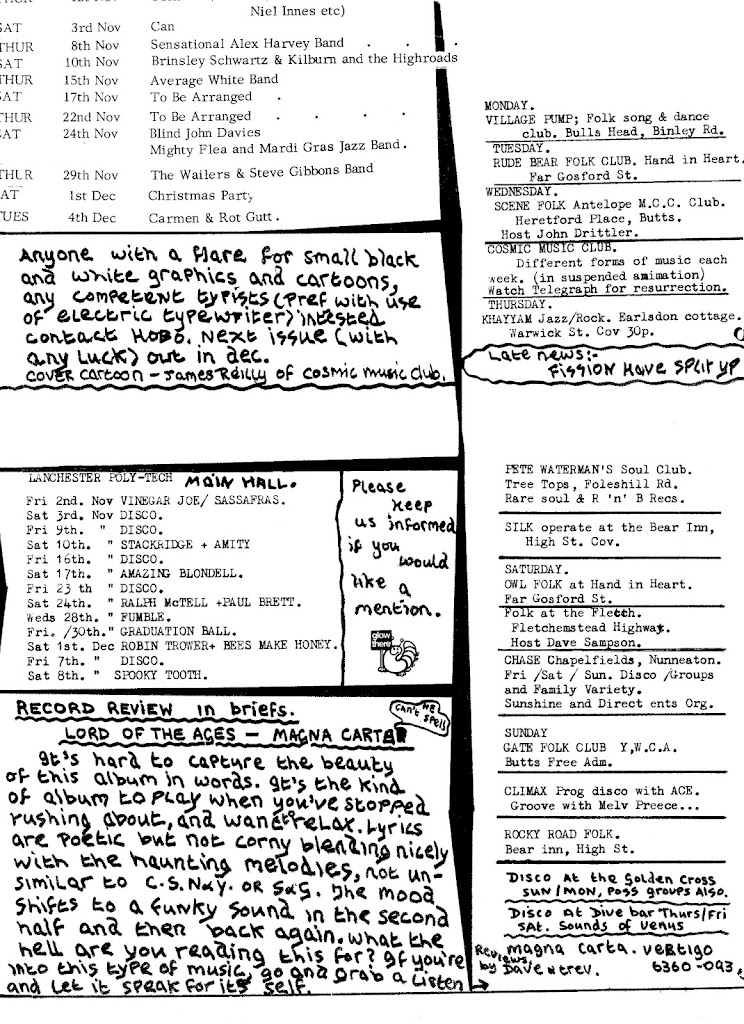 Niel Innes etc)
SAT 3rd Nov Can
THUR 8th Nov Sensational Alex Harvey Band . . .
SAT 10th Nov Brinsley Schwartz & Kilburn and the Highroads
THUR 15th Nov Average White Band
SAT 17th Nov To Be Arranged .
THUR 22nd Nov To Be Arranged . . . .
SAT 24th Nov Blind John Davies
Mighty Flea and Mardi Gras Jazz Band.
THUR 29th Nov The Wailers & Steve Gibbons Band
SAT 1st Dec Christmas Party
TUES 4th Dec Carmen & Rot Gutt.
Anyone with a flare for small black
and white graphics and cartoons,
any competent typists (pref with use
of electric typewriter) intested
contact HOBO. Next issue (with
any luck) out in dec.
COVER CARTOON - James Reilly of cosmic music club.
LANCHESTER POLY-TECH MAIN HALL.
Fri 2nd. Nov VINEGAR JOE/ SASSAFRAS.
Sat 3rd. Nov DISCO.
Fri 9th. " DISCO.
Sat 10th. " STACKRIDGE + AMITY
Fri 16th. " DISCO.
Sat 17th. " AMAZING BLONDELL.
Fri 23 th " DISCO.
Sat 24th. " RALPH McTELL +PAUL BRETT.
Weds 28th. " FUMBLE.
Fri. /30th." GRADUATION BALL.
Sat 1st. Dec ROBIN TROWER+ BEES MAKE HONEY.
Fri 7th. " DISCO.
Sat 8th. " SPOOKY TOOTH.
Please
keep
us informed
if you
would
like a
mention.
glow
there
RECORD REVIEW in briefs.
Can't He
Spell
LORD OF THE AGES - MAGNA CARTER
It's hard to capture the beauty
of this album in words. It's the kind
of album to play when you've stopped
rushing about, and want relax. Lyrics
are poetic but not corny blending nicely
with the haunting melodies, not un-
similar to C.S.N&Y. OR S&G. The mood
shifts to a funky sound in the second
half and then back again. What the
hell are you reading this for? If you're
into this type of music, go and grab a listen
and let it speak for its self.
MONDAY.
VILLAGE PUMP; Folk song & dance
club. Bulls Head, Binley Rd.
TUESDAY.
RUDE BEAR FOLK CLUB. Hand in Heart.
Far Gosford St.
WEDNESDAY.
SCENE FOLK Antelope M.C.C. Club.
Heretford Place, Butts.
Host John Drittler.
COSMIC MUSIC CLUB.
Different forms of music each
week. (in suspended animation)
Watch Telegraph for resurrection.
THURSDAY.
KHAYYAM Jazz/Rock. Earlsdon cottage.
Warwick St. Cov 30p.
Late news:-
FISSION HAVE SPLIT UP
PETE WATERMAN'S Soul Club.
Tree Tops, Foleshill Rd.
Rare soul & R 'n' B Recs.
SILK operate at the Bear Inn,
High St. Cov.
SATURDAY.
OWL FOLK at Hand in Heart.
Far Gosford St.
Folk at the Fletch.
Fletchemstead Highway.
Host Dave Sampson.
CHASE Chapelfields, Nunneaton.
Fri /Sat / Sun. Disco /Groups
and Family Variety.
Sunshine and Direct ents Org.
SUNDAY
GATE FOLK CLUB Y,W.C.A.
Butts Free Adm.
CLIMAX Prog disco with ACE.
Groove with Melv Preece...
ROCKY ROAD FOLK.
Bear inn, High St.
Disco At the Golden Cross
SUN/MON, Poss groups Also.
Disco At Dive bar Thurs/Fri
SAt. Sounds of Venus
magna carta. vertigo
6360-093
Reviews
by Dave n trev.